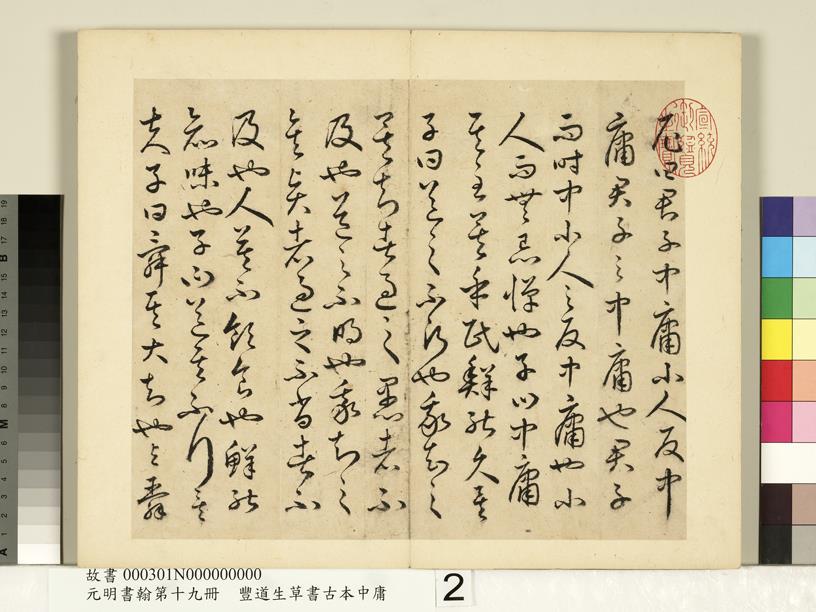 尼曰君子中庸小人反中
庸君子之中庸也君子
而時中小人之反中庸也小
人而無忌憚也子曰中庸
其至矣乎民鮮能久矣
子曰道之不行也我知之
矣知者過之愚者不
及也道之不明也我知之
矣賢者過之不肖者不
及也人莫不飲食也鮮能
知味也子曰道其不行矣
夫子曰舜其大知也與舜
宣統
御覽
之寶
故書 000301N000000000
元明書翰第十九冊 豐道生草書古本中庸
2